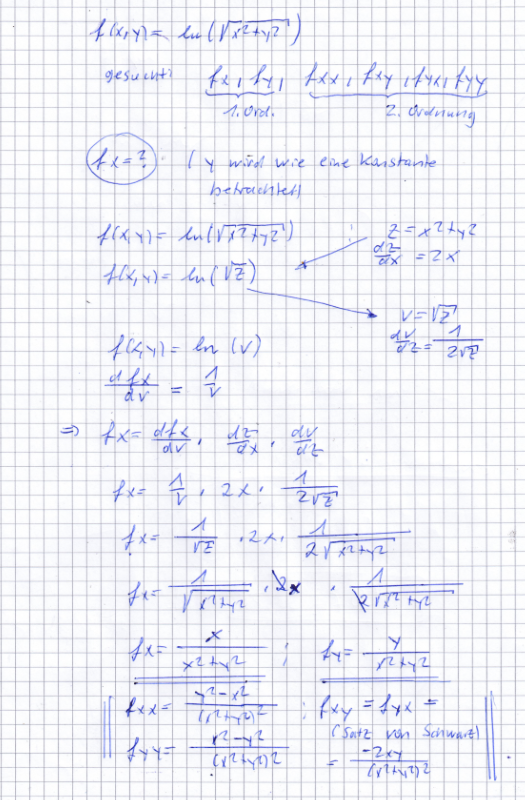 f(x,y) = ln(√x²+y²)
gesucht: fx, fy, fxx, fxy, fyx, fyy
1. Ord. 2. Ordnung
fx = ? (y wird wie eine Konstante
betrachtet)
f(x,y) = ln(√x²+y²) z = x²+y²
dz/dx = 2x
f(x,y) = ln(√z)
v = √z
dv/dz = 1/2√z
f(x,y) = ln(v)
dfx/dv = 1/v
⇒ fx = dfx/dv · dz/dx · dv/dz
fx = 1/v · 2x · 1/2√z
fx = 1/√z · 2x · 1/2√x²+y²
fx = 1/√x²+y² · 2x · 1/2√x²+y²
fx = x/x²+y² ; fy = y/x²+y²
fxx = y²-x²/(x²+y²)² ; fxy = fyx =
(Satz von Schwarz)
fyy = x²-y²/(x²+y²)² = -2xy/(x²+y²)²